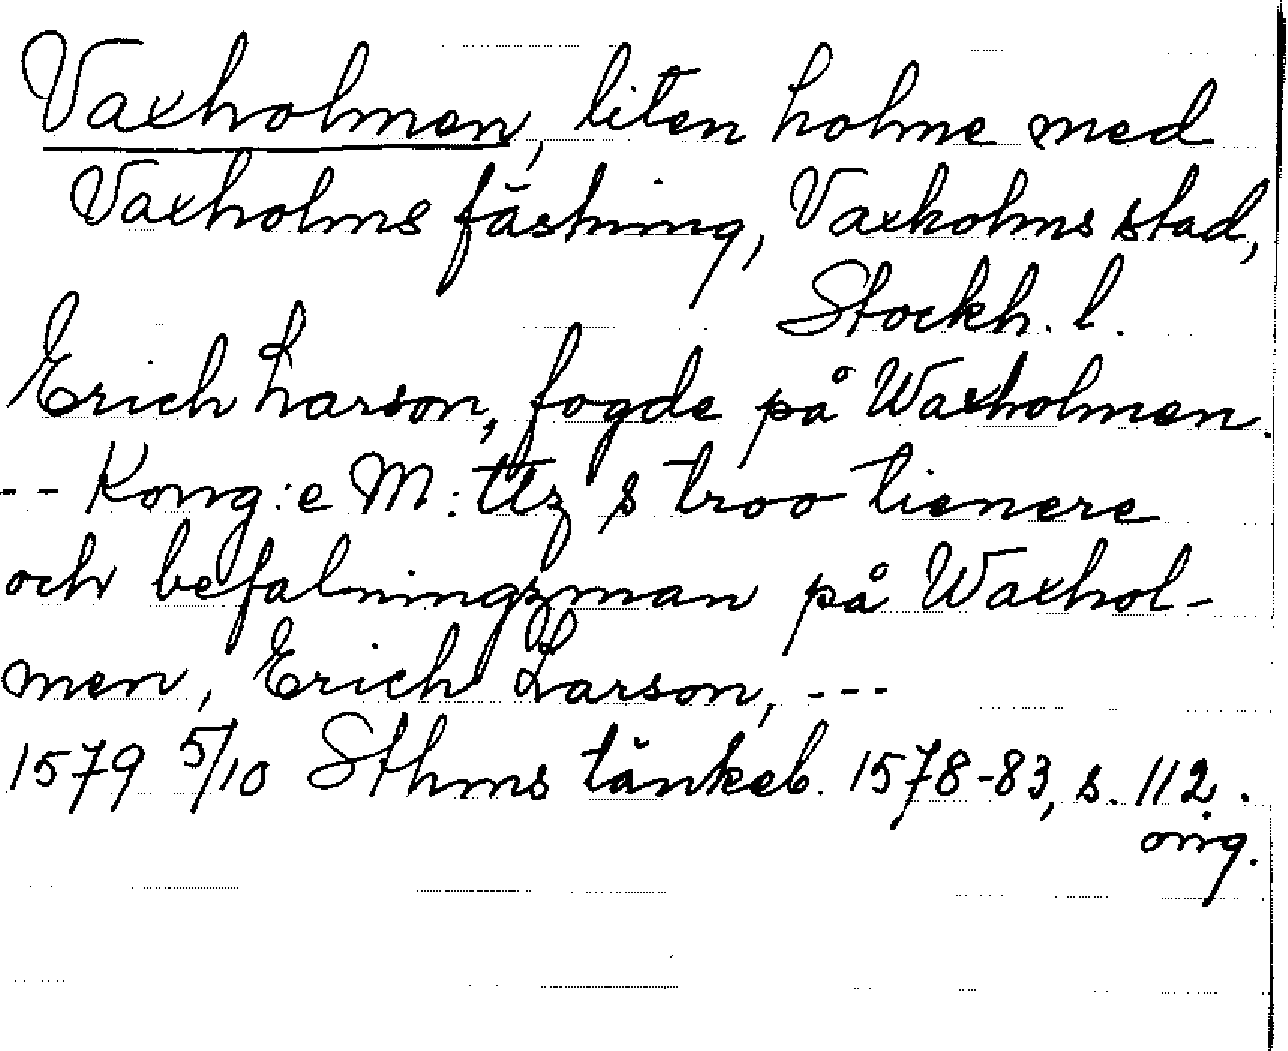 Vaxholmen, liten holme med
Vaxholms fästning, Vaxholms stad,
Stockh. l.
Erich Larson, fogde på Waxholmen.
-- Kong:e M:ttz s troo tienere
och befalningzman på Waxhol-
men, Erich Larson, ---
1579 5/10 Sthms tänkeb. 1578-83, s. 112.
orig.